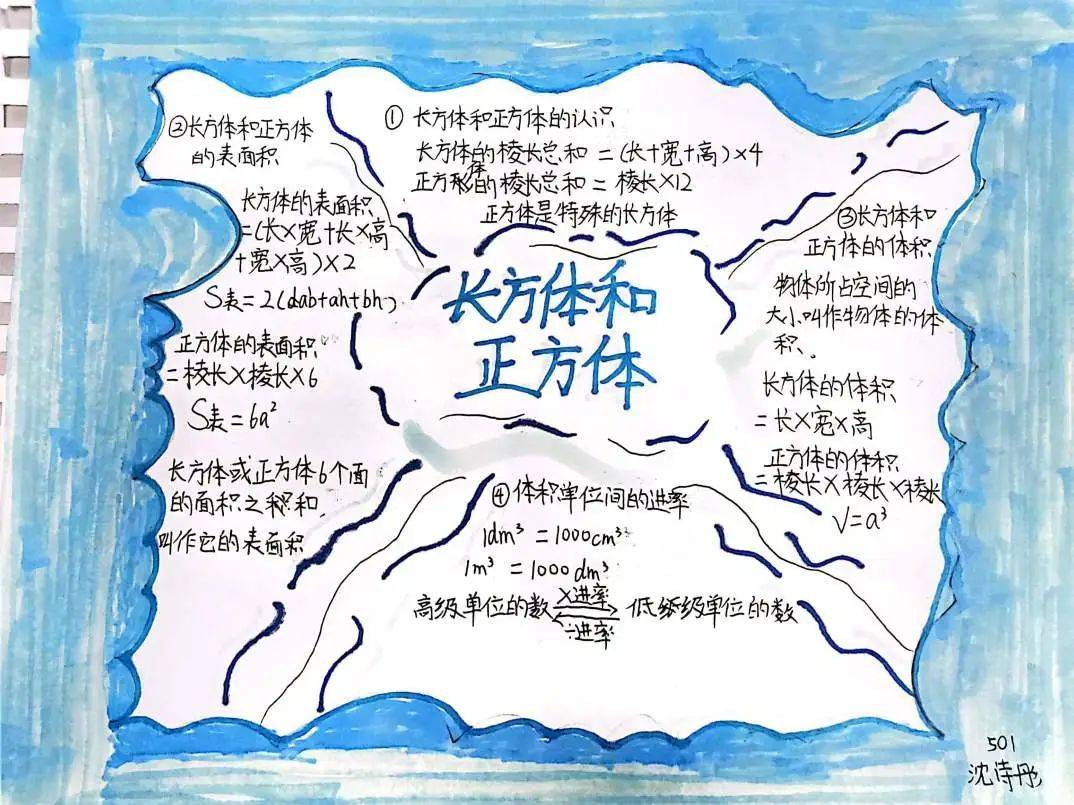 长方体和
正方体
① 长方体和正方体的认识
长方体的棱长总和=(长+宽+高)×4
正方体的棱长总和=棱长×12
正方体是特殊的长方体
②长方体和正方体
的表面积
长方体的表面积
=(长×宽+长×高
+宽×高)×2
S表=2(dab+ah+bh)
正方体的表面积
=棱长×棱长×6
S表=6a²
长方体或正方体6个面
的面积之和,
叫作它的表面积
③长方体和
正方体的体积
物体所占空间的
大小叫作物体的体
积.
长方体的体积
=长×宽×高
正方体的体积
=棱长×棱长×棱长
V=a³
④体积单位间的进率
1dm³=1000cm³
1m³=1000dm³
×进率
高级单位的数 低级单位的数
÷进率
501
沈诗彤